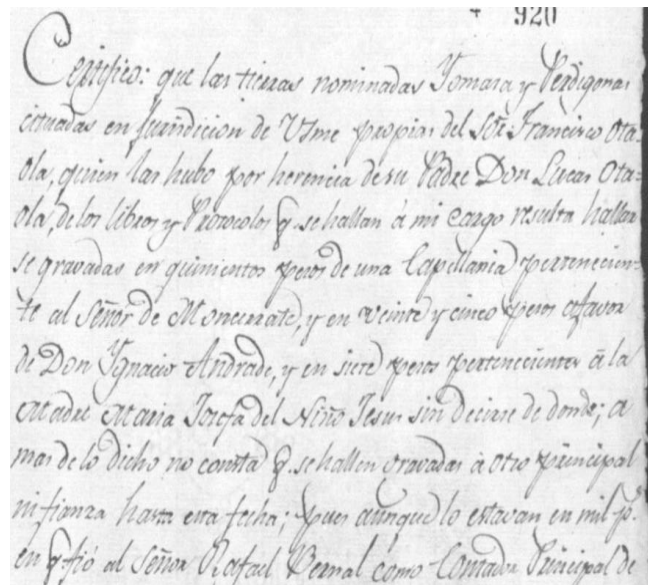 920
Certifico: que las tierras nominadas Yomasa y Perdigonas
cituadas en Jurisdicion de Usme propias del Sōr. Francisco Ota-
ola, quien las hubo por herencia de su Padre Don Lucas Ota-
ola, de los libros y Protocolos q. se hallan á mi cargo resulta hallar
se gravadas en quinientos pesos de una Capellania pertenecien-
te al Señor de Monserrate, y en veinte y cinco pesos afavor
de Don Ygnacio Andrade, y en siete pesos pertenecientes á la
Madre Maria Josefa del Niño Jesus sin decirse de donde; a
mas de lo dicho no consta q. se hallen gravadas á otro principal
ni fianza hasta esta fecha; pues aunque lo estavan en mil p.
en q. fió al Señor Rafael Bernal como Contador Principal de